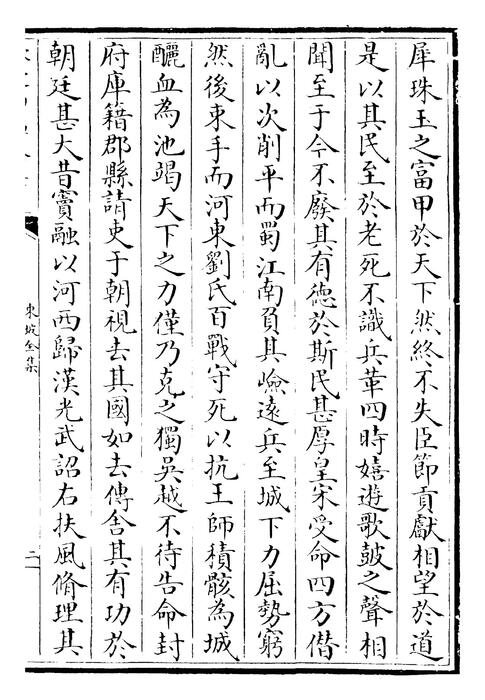 犀珠玉之富甲於天下然終不失臣節貢獻相望於道
是以其民至於老死不識兵革四時嬉遊歌鼓之聲相
聞至于今不廢其有德於斯民甚厚皇宋受命四方僣
亂以次削平而蜀江南負其嶮遠兵至城下力屈勢窮
然後束手而河東劉氏百戰守死以抗王師積骸為城
釃血為池竭天下之力僅乃克之獨吳越不待告命封
府庫籍郡縣請吏于朝視去其國如去傳舍其有功於
朝廷甚大昔竇融以河西歸漢光武詔右扶風脩理其
東坡全集